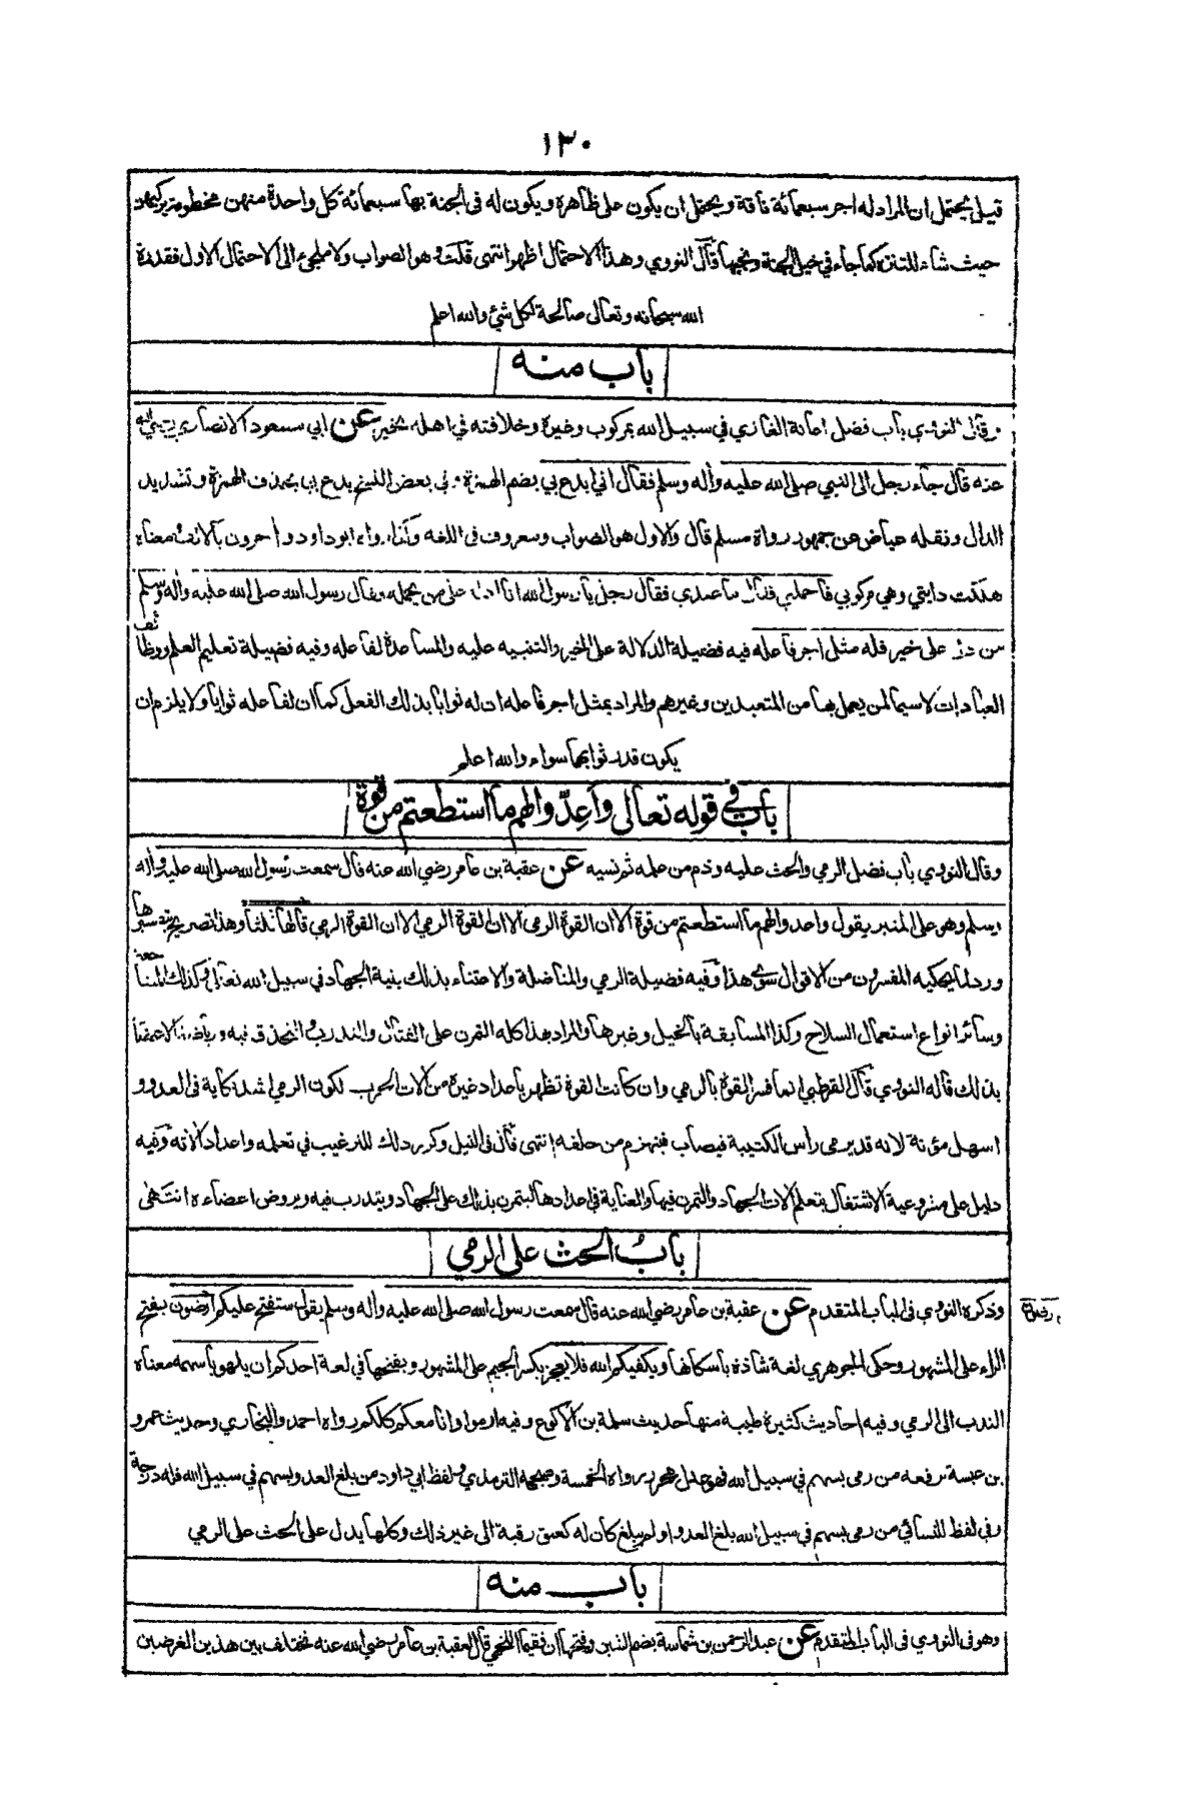 ١٣٠
قيل يحتمل ان المراد له اجر سبعمائة ناقة ويحتمل ان يكون على ظاهره ويكون له فى الجنة بها سبعمائة كل واحدة منهن مخطومة يركبهن
حيث شاء للتنزه كما جاء في خيل الجنة ونجبها قال النووي وهذا الاحتمال اظهر انتهى قلت وهو الصواب ولا ملجئ الى الاحتمال الاول فقدرة
الله سبحانه وتعالى صالحة لكل شئ والله اعلم
باب منه
وقال النووي باب فضل اعانة الغازي في سبيل الله بمركوب وغيره وخلافته في اهله بخير عن ابي مسعود الانصاري رضي الله
عنه قال جاء رجل الى النبي صلى الله عليه واله وسلم فقال اني ابدع بي بضم الهمزة وفى بعض النسخ بدع بي بحذف الهمزة وتشديد
الدال ونقله عياض عن جمهور رواة مسلم قال والاول هو الصواب ومعروف فى اللغه وكذا رواه ابو داود واخرون بالالف معناه
هلكت دابتي وهي مركوبي فاحملني فقال ما عندي فقال رجل يا رسول الله انا ادله على من يحمله فقال رسول الله صلى الله عليه واله وسلم
من دل على خير فله مثل اجر فاعله فيه فضيلة الدلالة على الخير والتنبيه عليه والمساعدة لفاعله وفيه فضيلة تعليم العلم ووظائف
العبادات لا سيما لمن يعمل بها من المتعبدين وغيرهم والمراد بمثل اجر فاعله ان له ثوابا بذلك الفعل كما ان لفاعله ثوابا ولا يلزم ان
يكون قدر ثوابهما سواء والله اعلم
باب في قوله تعالى واعدّوا لهم ما استطعتم من قوة
وقال النووي باب فضل الرمي والحث عليه وذم من علمه ثم نسيه عن عقبة بن عامر رضي الله عنه قال سمعت رسول الله صلى الله عليه واله
وسلم وهو على المنبر يقول واعدوا لهم ما استطعتم من قوة الا ان القوة الرمي الا ان القوة الرمي الا ان القوة الرمي قالها ثلثا وهذا تصريح بتفسيرها
ورد لما يحكيه المفسرون من الاقوال سوى هذا وفيه فضيلة الرمي والمناضلة والاعتناء بذلك بنية الجهاد في سبيل الله تعالى وكذلك
وسائر انواع استعمال السلاح وكذا المسابقة بالخيل وغيرها والمراد بهذا كله التمرن على القتال والتدرب والتحذق فيه ورياضة الاعضاء
بذلك قاله النووي قال القرطبي انما فسر القوة بالرمي وان كانت القوة تظهر باعداد غيره من الات الحرب لكون الرمي اشد نكاية فى العدو و
اسهل مؤنة لانه قد يرمى راس الكتيبة فيصاب فينهزم من خلفه انتهى قال فى النيل وكرر ذلك للترغيب في تعلمه واعداد الاته وفيه
دليل على مشروعية الاشتغال بتعلم الات الجهاد والتمرن فيها والعناية في اعدادها ليتمرن بذلك على الجهاد ويتدرب فيه ويروض اعضاءه انتهى
باب الحث على الرمي
وذكره النووي فى الباب المتقدم عن عقبة بن عامر رضي الله عنه قال سمعت رسول الله صلى الله عليه واله وسلم يقول ستفتح عليكم ارضون بفتح
الراء على المشهور وحكى الجوهري لغة شاذة باسكانها ويكفيكم الله فلا يعجز بكسر الجيم على المشهور وبفتحها في لغة احدكم ان يلهو باسهمه معناه
الندب الى الرمي وفيه احاديث كثيرة طيبة منها حديث سلمة بن الاكوع وفيه ارموا وانا معكم كلكم رواه احمد والبخاري وحديث عمرو
بن عبسة يرفعه من رمى بسهم في سبيل الله فهو عدل محرر رواه الخمسة وصححه الترمذي ولفظ ابي داود من بلغ العدو بسهم في سبيل الله فله درجة
وفى لفظ للنسائي من رمى بسهم في سبيل الله بلغ العدو او لم يبلغ كان له كعتق رقبة الى غير ذلك وكلها يدل على الحث على الرمي
باب منه
وهو فى النووي فى الباب المتقدم عن عبد الرحمن بن شماسة بضم الشين وفتحها ان فقيما اللخمي قال لعقبة بن عامر رضي الله عنه تختلف بين هذين الغرضين